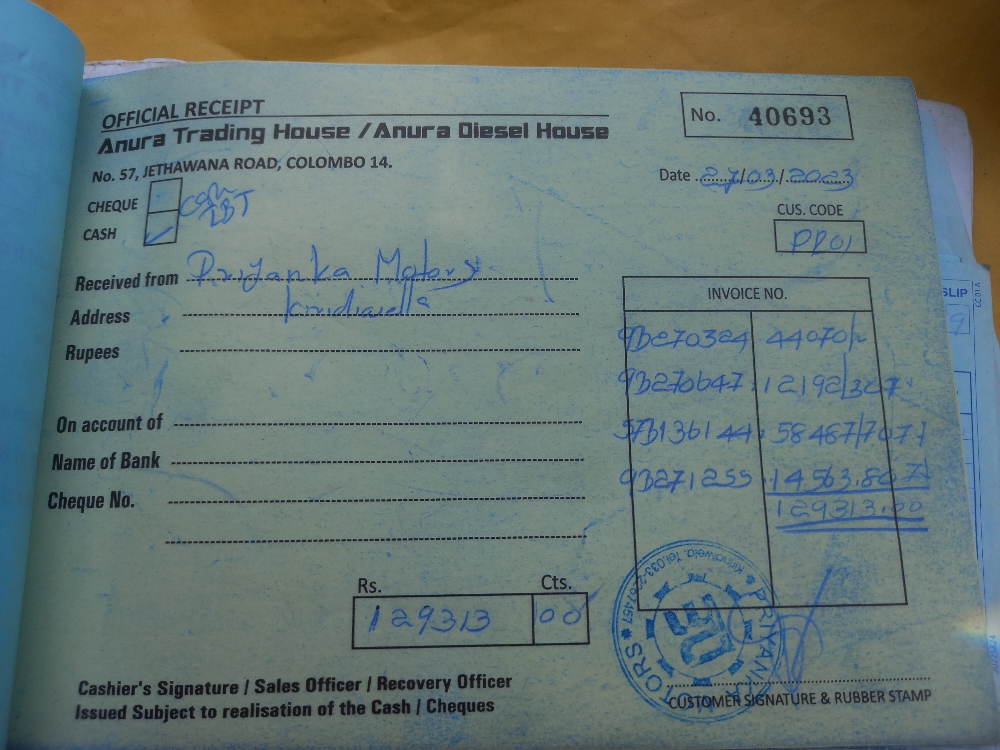 OFFICIAL RECEIPT
Anura Trading House / Anura Diesel House
No. 57, JETHAWANA ROAD, COLOMBO 14.
No. 40693
Date 27/03/2023
CHEQUE
CASH
CUS. CODE
PP01
Received from Priyanka Motors
Address
Rupees
On account of
Name of Bank
Cheque No.
INVOICE NO.
9B270324 44070/-
9B270647 12192/30
57B136144 58487/70
9B271255 14563.80
129313.00
Rs. Cts.
129313 00
PRIYANKA MOTORS
Cashier's Signature / Sales Officer / Recovery Officer
Issued Subject to realisation of the Cash / Cheques
CUSTOMER SIGNATURE & RUBBER STAMP
SLIP